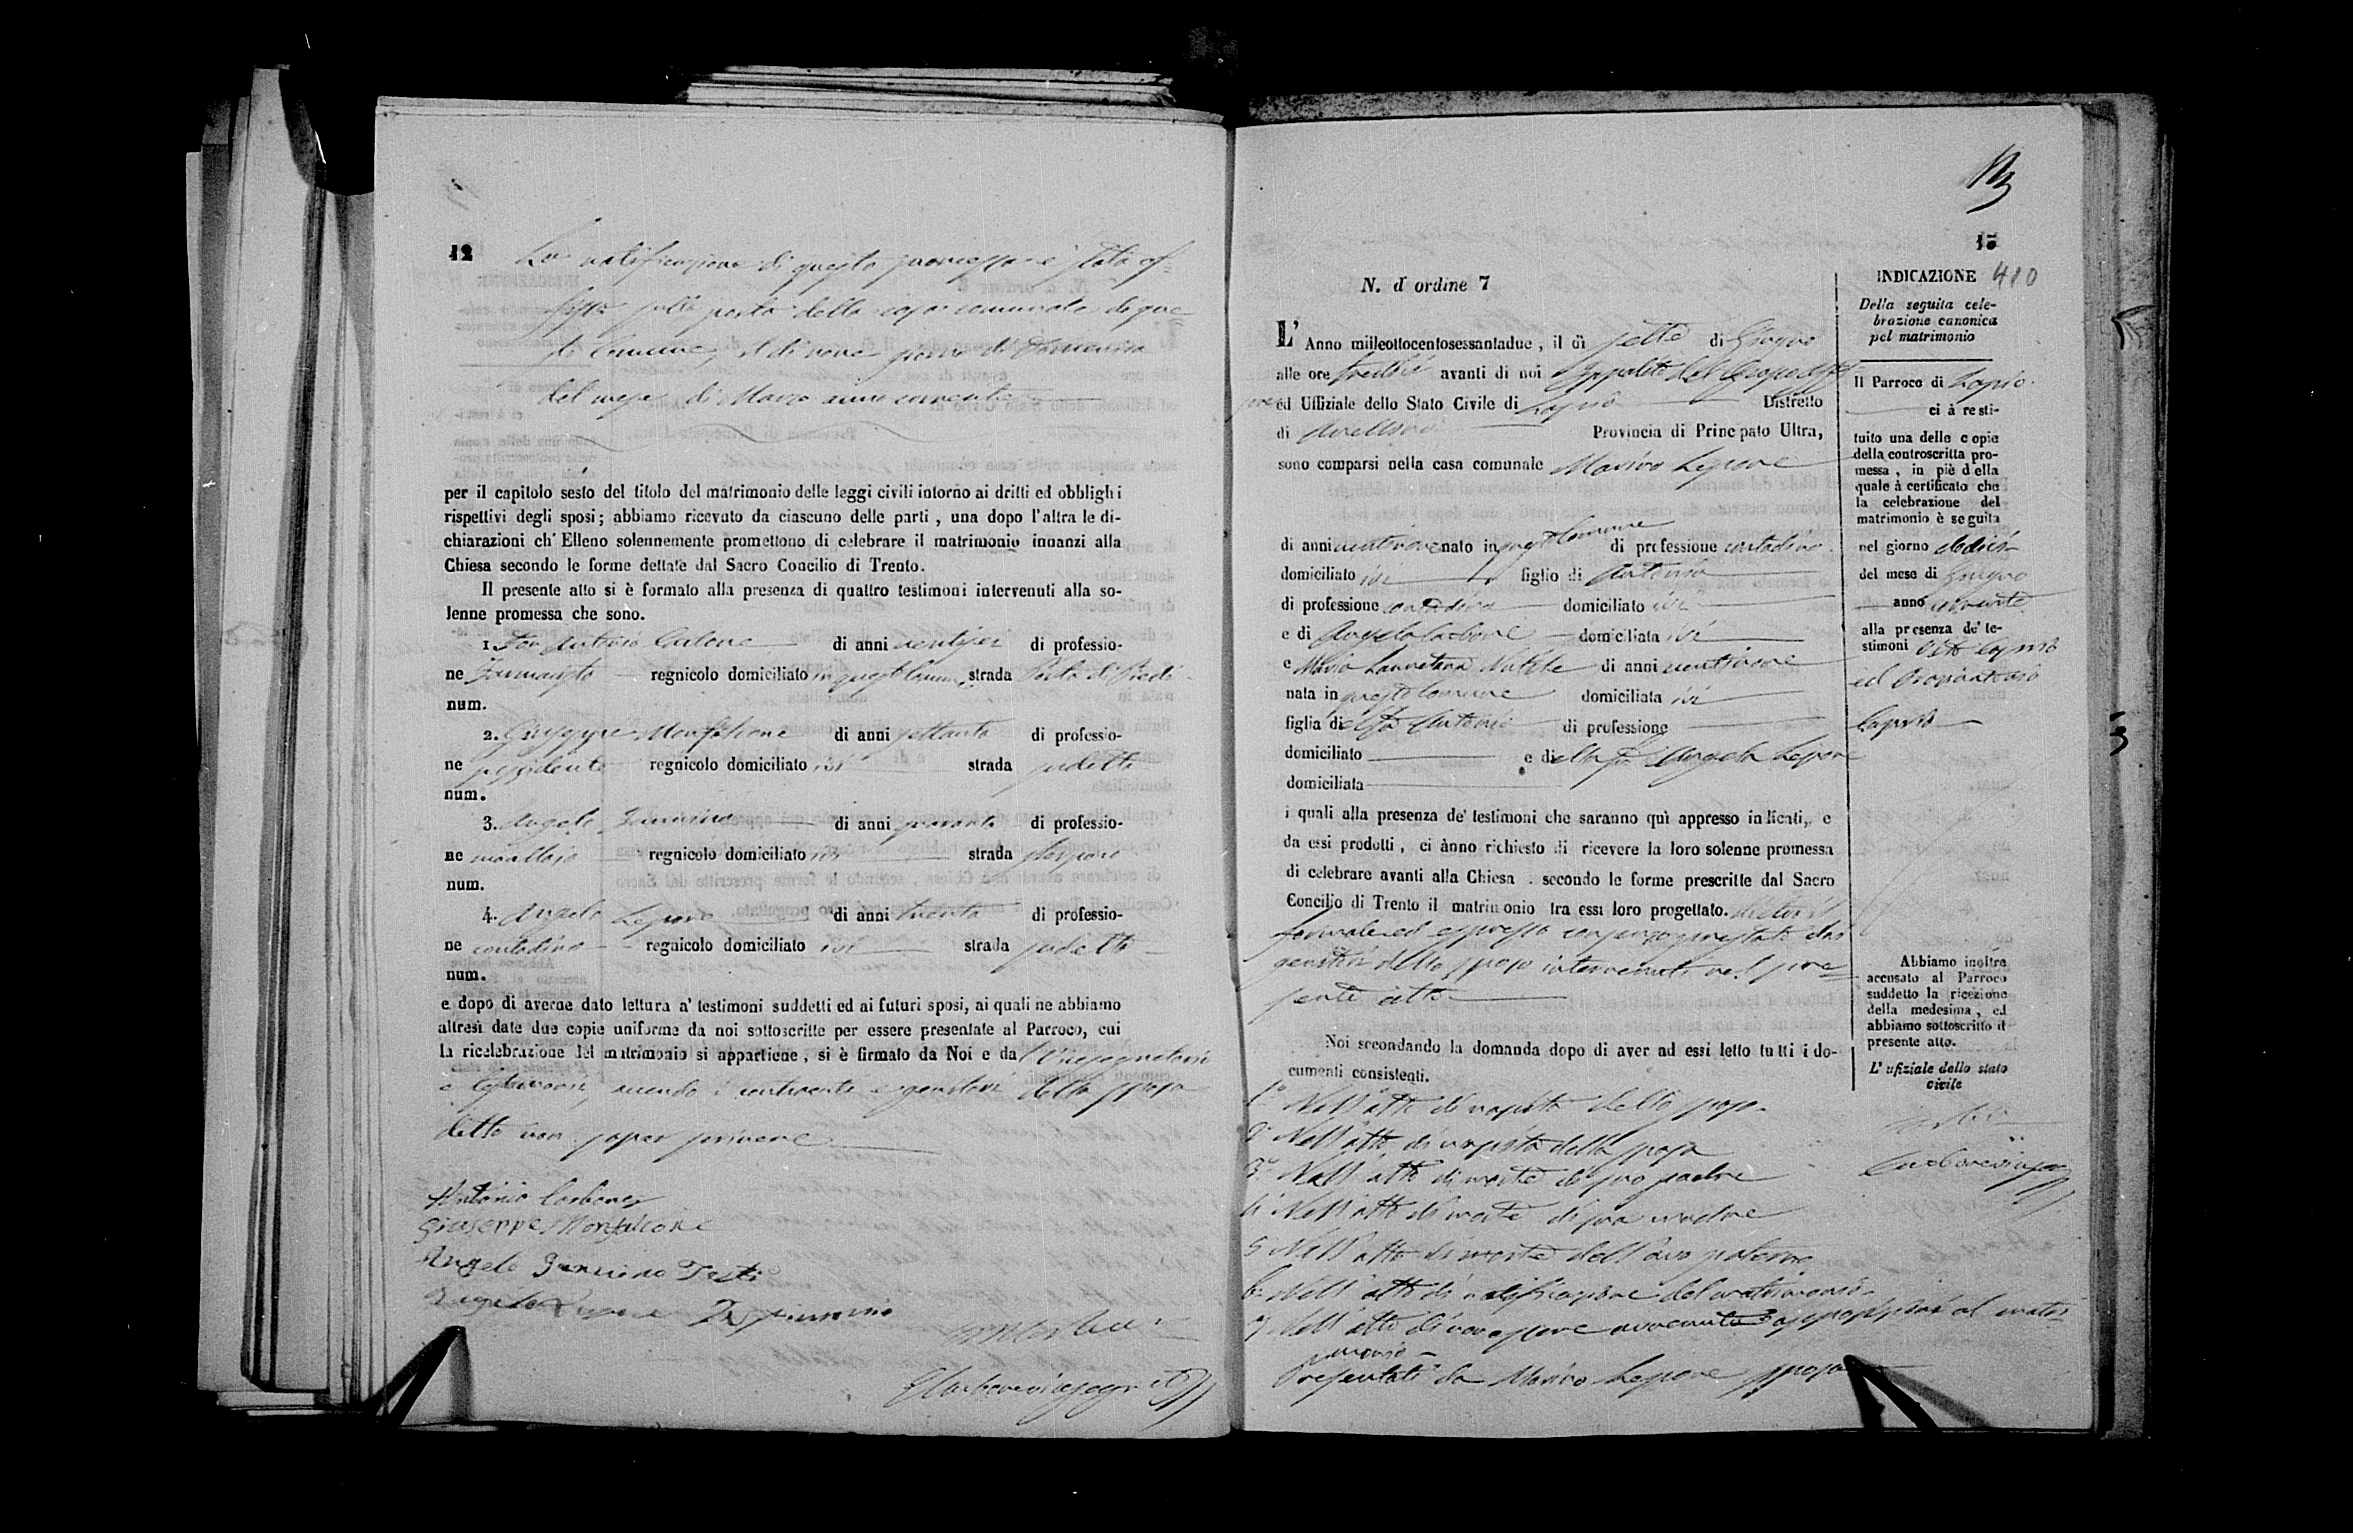 12
La notificazione di questa promessa è stata af-
fissa sulla porta della casa comunale di que-
sto Comune, il di nove giorno di Domenica
del mese di Marzo anno corrente
per il capitolo sesto del titolo del matrimonio delle leggi civili intorno ai dritti ed obblighi
rispettivi degli sposi; abbiamo ricevuto da ciascuno delle parti, una dopo l'altra le di-
chiarazioni ch' Elleno solennemente promettono di celebrare il matrimonio innanzi alla
Chiesa secondo le forme dettate dal Sacro Concilio di Trento.
Il presente atto si è formato alla presenza di quattro testimoni intervenuti alla so-
lenne promessa che sono.
1. Don Antonio Carbone di anni ventisei di professio-
ne Farmacista regnicolo domiciliato in questo Comune strada
num.
2. Giuseppe Monfalcone di anni settanta di professio-
ne possidente regnicolo domiciliato ivi strada sudetta
num.
3. Angelo di anni quaranta di professio-
ne regnicolo domiciliato ivi strada
num.
4. Angelo Lepore di anni trenta di professio-
ne contadino regnicolo domiciliato ivi strada sudetta
num.
e dopo di averne dato lettura a' testimoni suddetti ed ai futuri sposi, ai quali ne abbiamo
altresì date due copie uniforme da noi sottoscritte per essere presentate al Parroco, cui
la ricelebrazione del matrimonio si appartiene, si è firmato da Noi e da
e testimoni, avendo i contraenti e genitori dello sposo
detto non saper scrivere
Antonio Carbone
Giuseppe Monfalcone
Angelo
Angelo Lepore Testimonio
13
15
N. d' ordine 7
L' Anno milleottocentosessantadue, il dì sette di Giugno
alle ore tredici avanti di noi Ippolito del
ed Uffiziale dello Stato Civile di Lapio Distretto
di Avellino Provincia di Principato Ultra,
sono comparsi nella casa comunale Marino Lepore
di anni ventinove nato in questo Comune di professione contadino
domiciliato ivi figlio di Antonio
di professione contadino domiciliato ivi
e di Angela Carbone domiciliata ivi
e Maria Lauretana Natale di anni ventinove
nata in questo Comune domiciliata ivi
figlia di Antonio di professione
domiciliato e di Angela Lepore
domiciliata
i quali alla presenza de' testimoni che saranno quì appresso indicati, e
da essi prodotti, ci ànno richiesto di ricevere la loro solenne promessa
di celebrare avanti alla Chiesa, secondo le forme prescritte dal Sacro
Concilio di Trento il matrimonio tra essi loro progettato. dietro il
formale ed espresso consenso prestato dai
genitori dello sposo intervenuti nel pre-
sente atto
Noi secondando la domanda dopo di aver ad essi letto tutti i do-
cumenti consistenti.
1° Nell'atto di nascita dello sposo.
2° Nell'atto di nascita della sposa
3° Nell'atto di morte di suo padre
4° Nell'atto di morte di sua madre
5 Nell'atto di morte dell'avo paterno
6° Nell'atto di notificazione del matrimonio.
7 Nell'atto di non essere avvenuta opposizione al matri-
monio
Presentati da Marino Lepore sposo
INDICAZIONE 410
Della seguita cele-
brazione canonica
pel matrimonio
Il Parroco di Lapio
ci à resti-
tuito una delle copie
della controscritta pro-
messa, in piè della
quale à certificato che
la celebrazione del
matrimonio è seguita
nel giorno dodici
del mese di Giugno
anno corrente
alla presenza de' te-
stimoni Vito Caprio
ed
Caprio
Abbiamo inoltre
accusato al Parroco
suddetto la ricezione
della medesima, ed
abbiamo sottoscritto il
presente atto.
L' ufiziale dello stato
civile